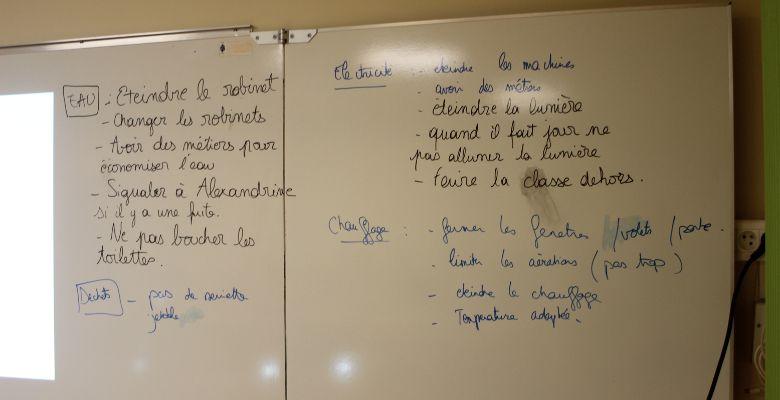 EAU : Eteindre le robinet
- Changer les robinets
- Avoir des métiers pour
économiser l'eau
- Signaler à Alexandrine
si il y a une fuite.
- Ne pas boucher les
toilettes.
Déchets - pas de serviette
jetable
Electricité : - eteindre les machines
- avoir des métiers
- éteindre la lumière
- quand il fait jour ne
pas allumer la lumière
- Faire la classe dehors.
Chauffage : - fermer les fenetres /volets /porte.
- limiter les aérations (pas trop)
- eteindre le chauffage
- Température adaptée.